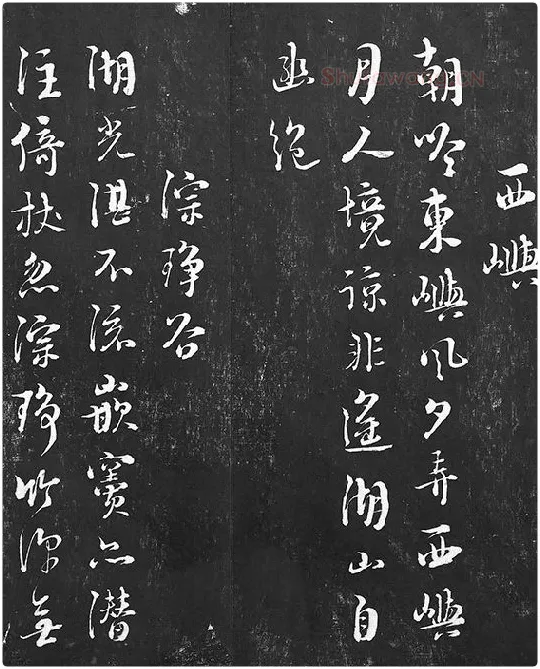 西嶼
朝吟東嶼風夕弄西嶼
月人境諒非遙湖山自
幽絕
淙琤谷
湖光湛不流嵌竇亦潛
注倚杖忽淙琤竹深無